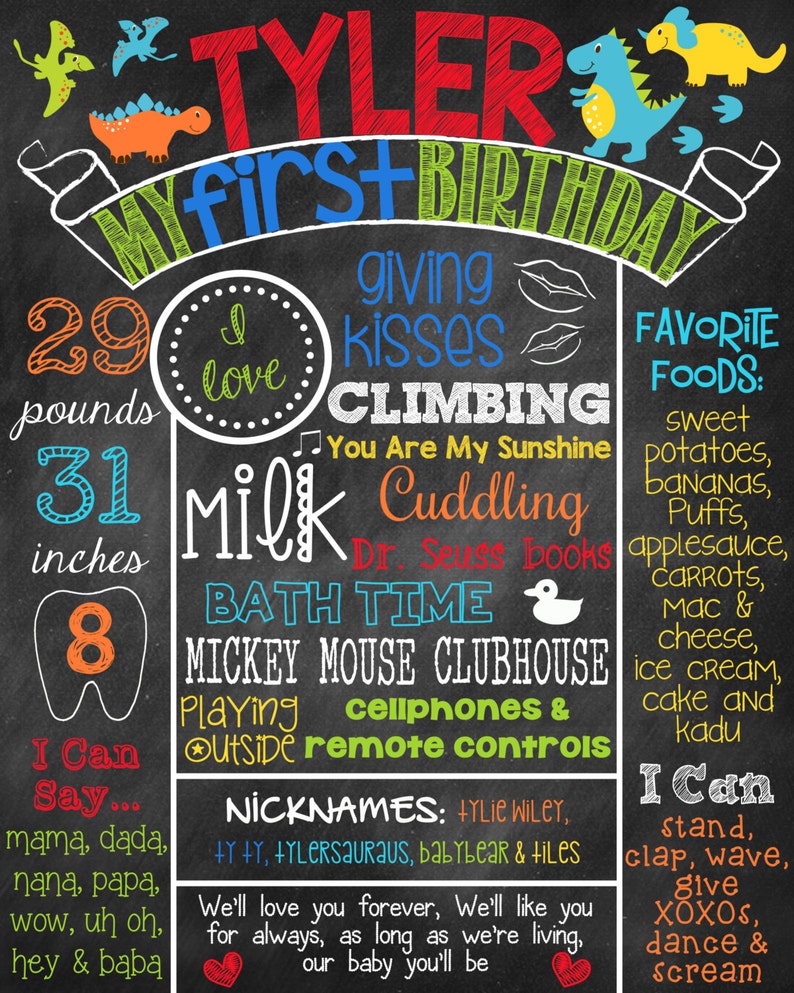 TYLER
MY first BIRTHDAY
29
pounds
31
inches
8
I Can
Say...
mama, dada,
nana, papa,
wow, uh oh,
hey & baba
I
love
giving
kisses
CLIMBING
You Are My Sunshine
Milk
Cuddling
Dr. Seuss books
BATH TIME
MICKEY MOUSE CLUBHOUSE
Playing
Outside
cellphones &
remote controls
NICKNAMES: TYLIE WILEY,
TY TY, TYLERSAURAUS, BABYBEAR & TILES
We'll love you forever, We'll like you
for always, as long as we're living,
our baby you'll be
FAVORITE
FOODS:
sweet
potatoes,
bananas,
Puffs,
applesauce,
carrots,
mac &
cheese,
ice cream,
cake and
kadu
I Can
stand,
clap, wave,
give
XOXOs,
dance &
scream